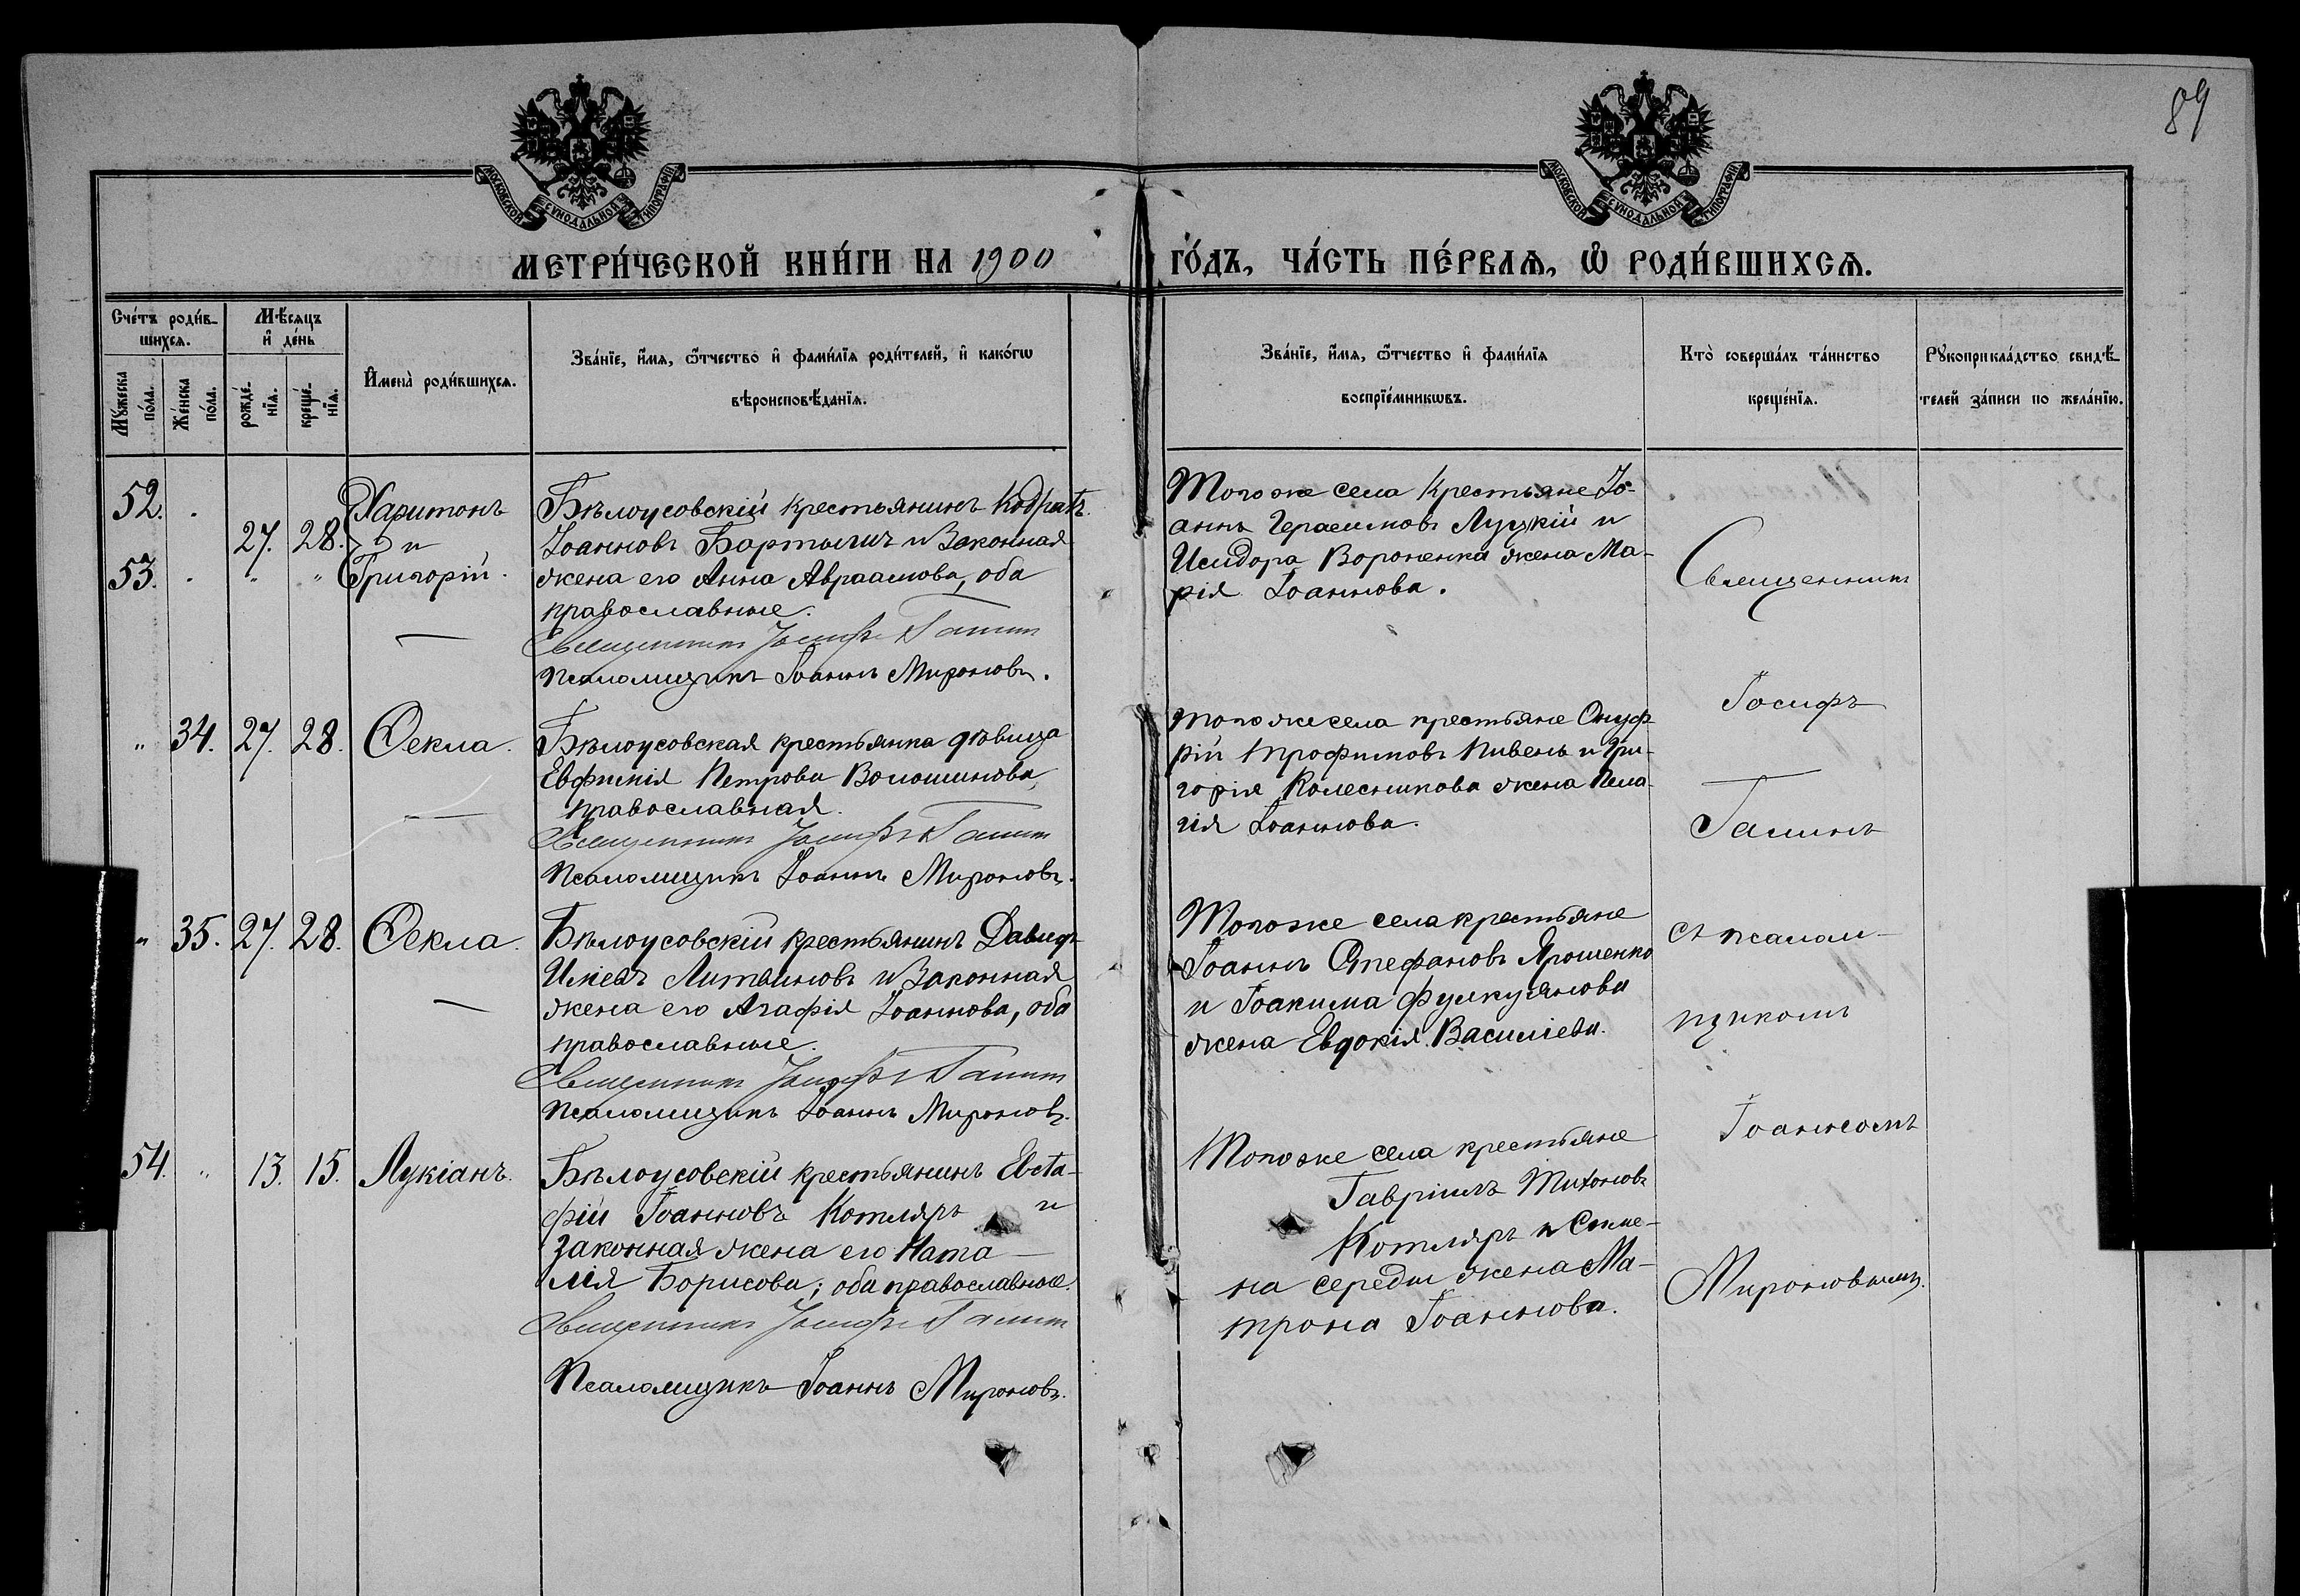 89
МОСКОВСКОЙ СѴНОДАЛЬНОЙ ТИПОГРАФІИ
МОСКОВСКОЙ СѴНОДАЛЬНОЙ ТИПОГРАФІИ
МЕТРИ́ЧЕСКОЙ КНИ́ГИ НА 1900 ГО́ДЪ, ЧА́СТЬ ПЕ́РВАѦ, Ѽ РОДИ́ВШИХСѦ.
Сче́тъ роди́в-
шихсѧ.
Мꙋ́жеска по́ла.
Же́нска по́ла.
Мѣ́сѧцъ
и҆ де́нь
рожде́-
нїѧ.
креще́-
нїѧ.
И҆мена̀ роди́вшихсѧ.
Зва́нїе, и҆́мѧ, ѻ҆́тчество и҆ фами́лїѧ роди́телей, и҆ како́гѡ
вѣроисповѣ́данїѧ.
Зва́нїе, и҆́мѧ, ѻ҆́тчество и҆ фами́лїѧ
воспрїе́мникѡвъ.
Кто̀ соверша́лъ та́инство
креще́нїѧ.
Рꙋкоприкла́дство свидѣ́-
телей за́писи по жела́нїю.
52. 27. 28. Харитонъ
и
53. " " Григорій.
Бѣлоусовскій крестьянинъ Кодратъ
Іоанновъ Бортычъ и законная
жена его Анна Авраамова, оба
православные.
Священникъ Іосифъ Галинъ
Псаломщикъ Іоаннъ Мироновъ.
Того же села крестьяне Іо-
аннъ Герасимовъ Луцкій и
Исидора Вороненка жена Ма-
рія Іоаннова.
" 34. 27. 28. Ѳекла.
Бѣлоусовская крестьянка дѣвица
Евфимія Петрова Волошинова,
православная.
Священникъ Іосифъ Галинъ
Псаломщикъ Іоаннъ Мироновъ.
того же села крестьяне Онуф-
рій Трофимовъ Пивень и Гри-
горія Колесникова жена Пела-
гія Іоаннова.
" 35. 27. 28. Ѳекла.
Бѣлоусовскій крестьянинъ Давидъ
Литвиновъ и законная
жена его Агафія Іоаннова, оба
православные.
Священникъ Іосифъ Галинъ
Псаломщикъ Іоаннъ Мироновъ.
Того же села крестьяне
Іоаннъ Стефановъ Ярошенко
и Іоакима
жена Евдокія Василіева.
54. " 13. 15. Лукіанъ.
Бѣлоусовскій крестьянинъ Евста-
фій Іоанновъ Котляръ и
законная жена его Ната-
лія Борисова; оба православные.
Священникъ Іосифъ Галинъ
Псаломщикъ Іоаннъ Мироновъ.
Того же села крестьяне
Гавріилъ Тихоновъ
Котляръ и Симе-
на Середы жена Ма-
трона Іоаннова.
Священникъ
Іосифъ
Галинъ
съ псалом-
щикомъ
Іоанномъ
Мироновымъ.